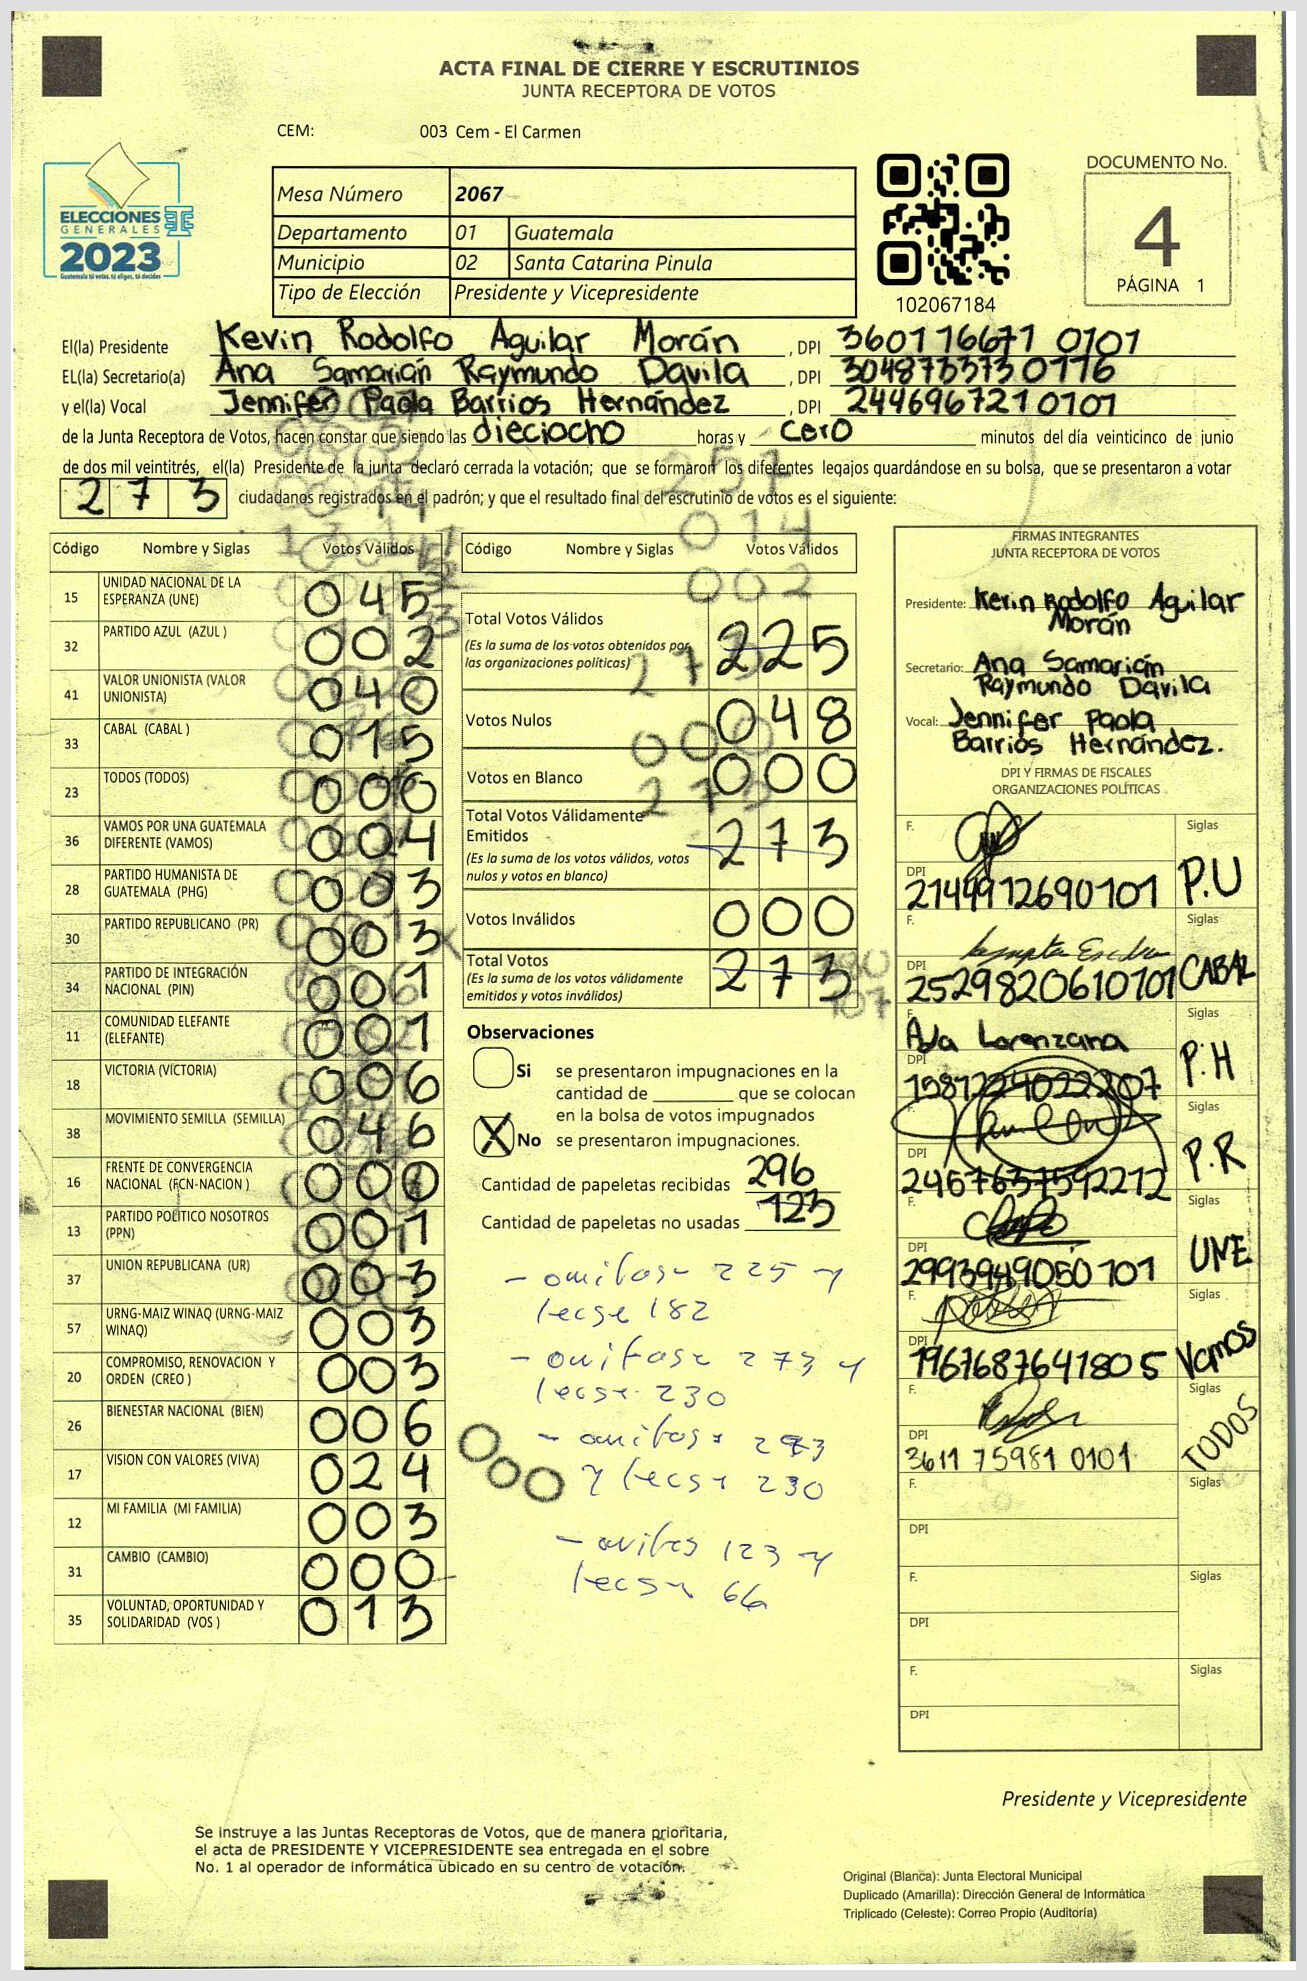 ACTA FINAL DE CIERRE Y ESCRUTINIOS
JUNTA RECEPTORA DE VOTOS
CEM: 003 Cem - El Carmen
ELECCIONES
GENERALES
2023
Guatemala tú votas, tú eliges, tú decides
Mesa Número 2067
Departamento 01 Guatemala
Municipio 02 Santa Catarina Pinula
Tipo de Elección Presidente y Vicepresidente
102067184
DOCUMENTO No.
4
PÁGINA 1
El(la) Presidente Kevin Rodolfo Aguilar Morán , DPI 3601 16671 0101
EL(la) Secretario(a) Ana Samarián Raymundo Davila , DPI 304873373 0116
y el(la) Vocal Jennifer Paola Barrios Hernández , DPI 244696721 0101
de la Junta Receptora de Votos, hacen constar que siendo las dieciocho horas y cero minutos del día veinticinco de junio
de dos mil veintitrés, el(la) Presidente de la junta declaró cerrada la votación; que se formaron los diferentes legajos guardándose en su bolsa, que se presentaron a votar
273 ciudadanos registrados en el padrón; y que el resultado final del escrutinio de votos es el siguiente:
Código Nombre y Siglas Votos Válidos
15 UNIDAD NACIONAL DE LA ESPERANZA (UNE) 045
32 PARTIDO AZUL (AZUL ) 002
41 VALOR UNIONISTA (VALOR UNIONISTA) 040
33 CABAL (CABAL ) 015
23 TODOS (TODOS) 006
36 VAMOS POR UNA GUATEMALA DIFERENTE (VAMOS) 004
28 PARTIDO HUMANISTA DE GUATEMALA (PHG) 003
30 PARTIDO REPUBLICANO (PR) 003
34 PARTIDO DE INTEGRACIÓN NACIONAL (PIN) 001
11 COMUNIDAD ELEFANTE (ELEFANTE) 001
18 VICTORIA (VICTORIA) 006
38 MOVIMIENTO SEMILLA (SEMILLA) 046
16 FRENTE DE CONVERGENCIA NACIONAL (FCN-NACION ) 000
13 PARTIDO POLITICO NOSOTROS (PPN) 001
37 UNION REPUBLICANA (UR) 003
57 URNG-MAIZ WINAQ (URNG-MAIZ WINAQ) 003
20 COMPROMISO, RENOVACION Y ORDEN (CREO ) 003
26 BIENESTAR NACIONAL (BIEN) 006
17 VISION CON VALORES (VIVA) 024
12 MI FAMILIA (MI FAMILIA) 003
31 CAMBIO (CAMBIO) 000
35 VOLUNTAD, OPORTUNIDAD Y SOLIDARIDAD (VOS ) 013
Código Nombre y Siglas Votos Válidos
257
014
002
Total Votos Válidos 225
(Es la suma de los votos obtenidos por
las organizaciones políticas)
Votos Nulos 048
Votos en Blanco 000
Total Votos Válidamente
Emitidos 273
(Es la suma de los votos válidos, votos
nulos y votos en blanco)
Votos Inválidos 000
Total Votos 273
(Es la suma de los votos válidamente
emitidos y votos inválidos)
Observaciones
Si se presentaron impugnaciones en la
cantidad de ________ que se colocan
en la bolsa de votos impugnados
X No se presentaron impugnaciones.
Cantidad de papeletas recibidas 296
Cantidad de papeletas no usadas 123
- omitase 225 y
lecse 182
- omitase 273 y
lecse 230
- omitase 273
y lecse 230
000
- omitas 123 y
lecse 66
FIRMAS INTEGRANTES
JUNTA RECEPTORA DE VOTOS
Presidente: Kevin Rodolfo Aguilar
Morán
Secretario: Ana Samarián
Raymundo Davila
Vocal: Jennifer Paola
Barrios Hernández.
DPI Y FIRMAS DE FISCALES
ORGANIZACIONES POLÍTICAS
F. Siglas
DPI 2144912690101 P.U
F. Siglas
DPI 2529820610101 CABAL
F. Ada Lorenzana Siglas
DPI 1587224022207 P.H
F. Siglas
DPI 2457637592212 P.R
F. Siglas
DPI 2993949050101 UNE
F. Siglas
DPI 1967687641805 Vamos
F. Siglas
DPI 3611 75981 0101 TODOS
F. Siglas
DPI
F. Siglas
DPI
F. Siglas
DPI
Presidente y Vicepresidente
Se instruye a las Juntas Receptoras de Votos, que de manera prioritaria,
el acta de PRESIDENTE Y VICEPRESIDENTE sea entregada en el sobre
No. 1 al operador de informática ubicado en su centro de votación.
Original (Blanca): Junta Electoral Municipal
Duplicado (Amarilla): Dirección General de Informática
Triplicado (Celeste): Correo Propio (Auditoría)